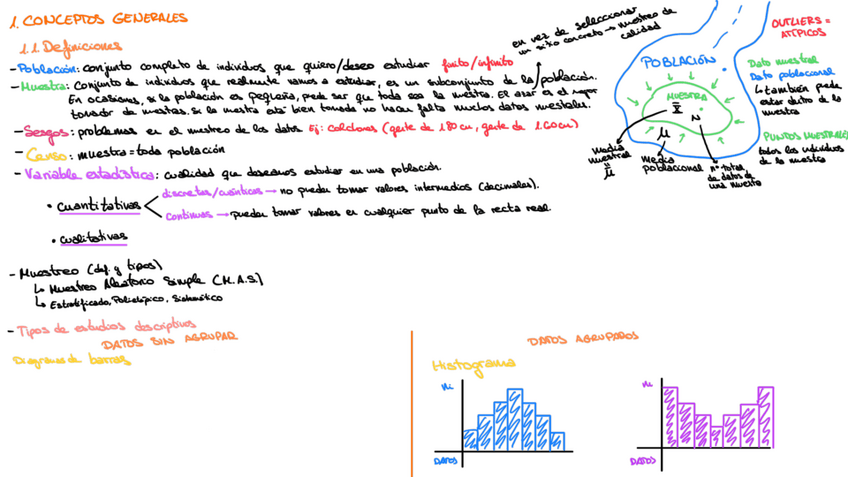 1. CONCEPTOS GENERALES
1.1. Definiciones
- Población: conjunto completo de individuos que quiero/deseo estudiar finito/infinito
- Muestra: Conjunto de individuos que realmente vamos a estudiar, es un subconjunto de la población.
En ocasiones, si la población es pequeña, puede ser que toda sea la muestra. El azar es el mejor
tomador de muestras, si la muestra está bien tomada no hacen falta muchos datos muestrales.
- Sesgos: problemas en el muestreo de los datos Ej: colchones (gente de 180 cm, gente de 160 cm)
- Censo: muestra = toda población
- Variable estadística: cualidad que deseamos estudiar en una población.
• cuantitativas
discretas/ → no pueden tomar valores intermedios (decimales).
continuas → pueden tomar valores en cualquier punto de la recta real.
• cualitativas
- Muestreo (def. y tipos)
↳ Muestreo Aleatorio Simple (M.A.S.)
↳ Estratificado, Polietápico, Sistemático
- Tipos de estudios descriptivos
DATOS SIN AGRUPAR
Diagramas de barras
en vez de seleccionar
un sitio concreto → muestreo de
calidad
POBLACIÓN
MUESTRA
x̄
N
μ
media
muestral
μ
media
poblacional
nº total
de datos de
una muestra
OUTLIERS =
ATÍPICOS
Dato muestral
Dato poblacional
↳ también puede
estar dentro de la
muestra
PUNTOS MUESTRALES
todos los individuos
de la muestra
DATOS AGRUPADOS
Histograma
ni
DATOS
ni
DATOS